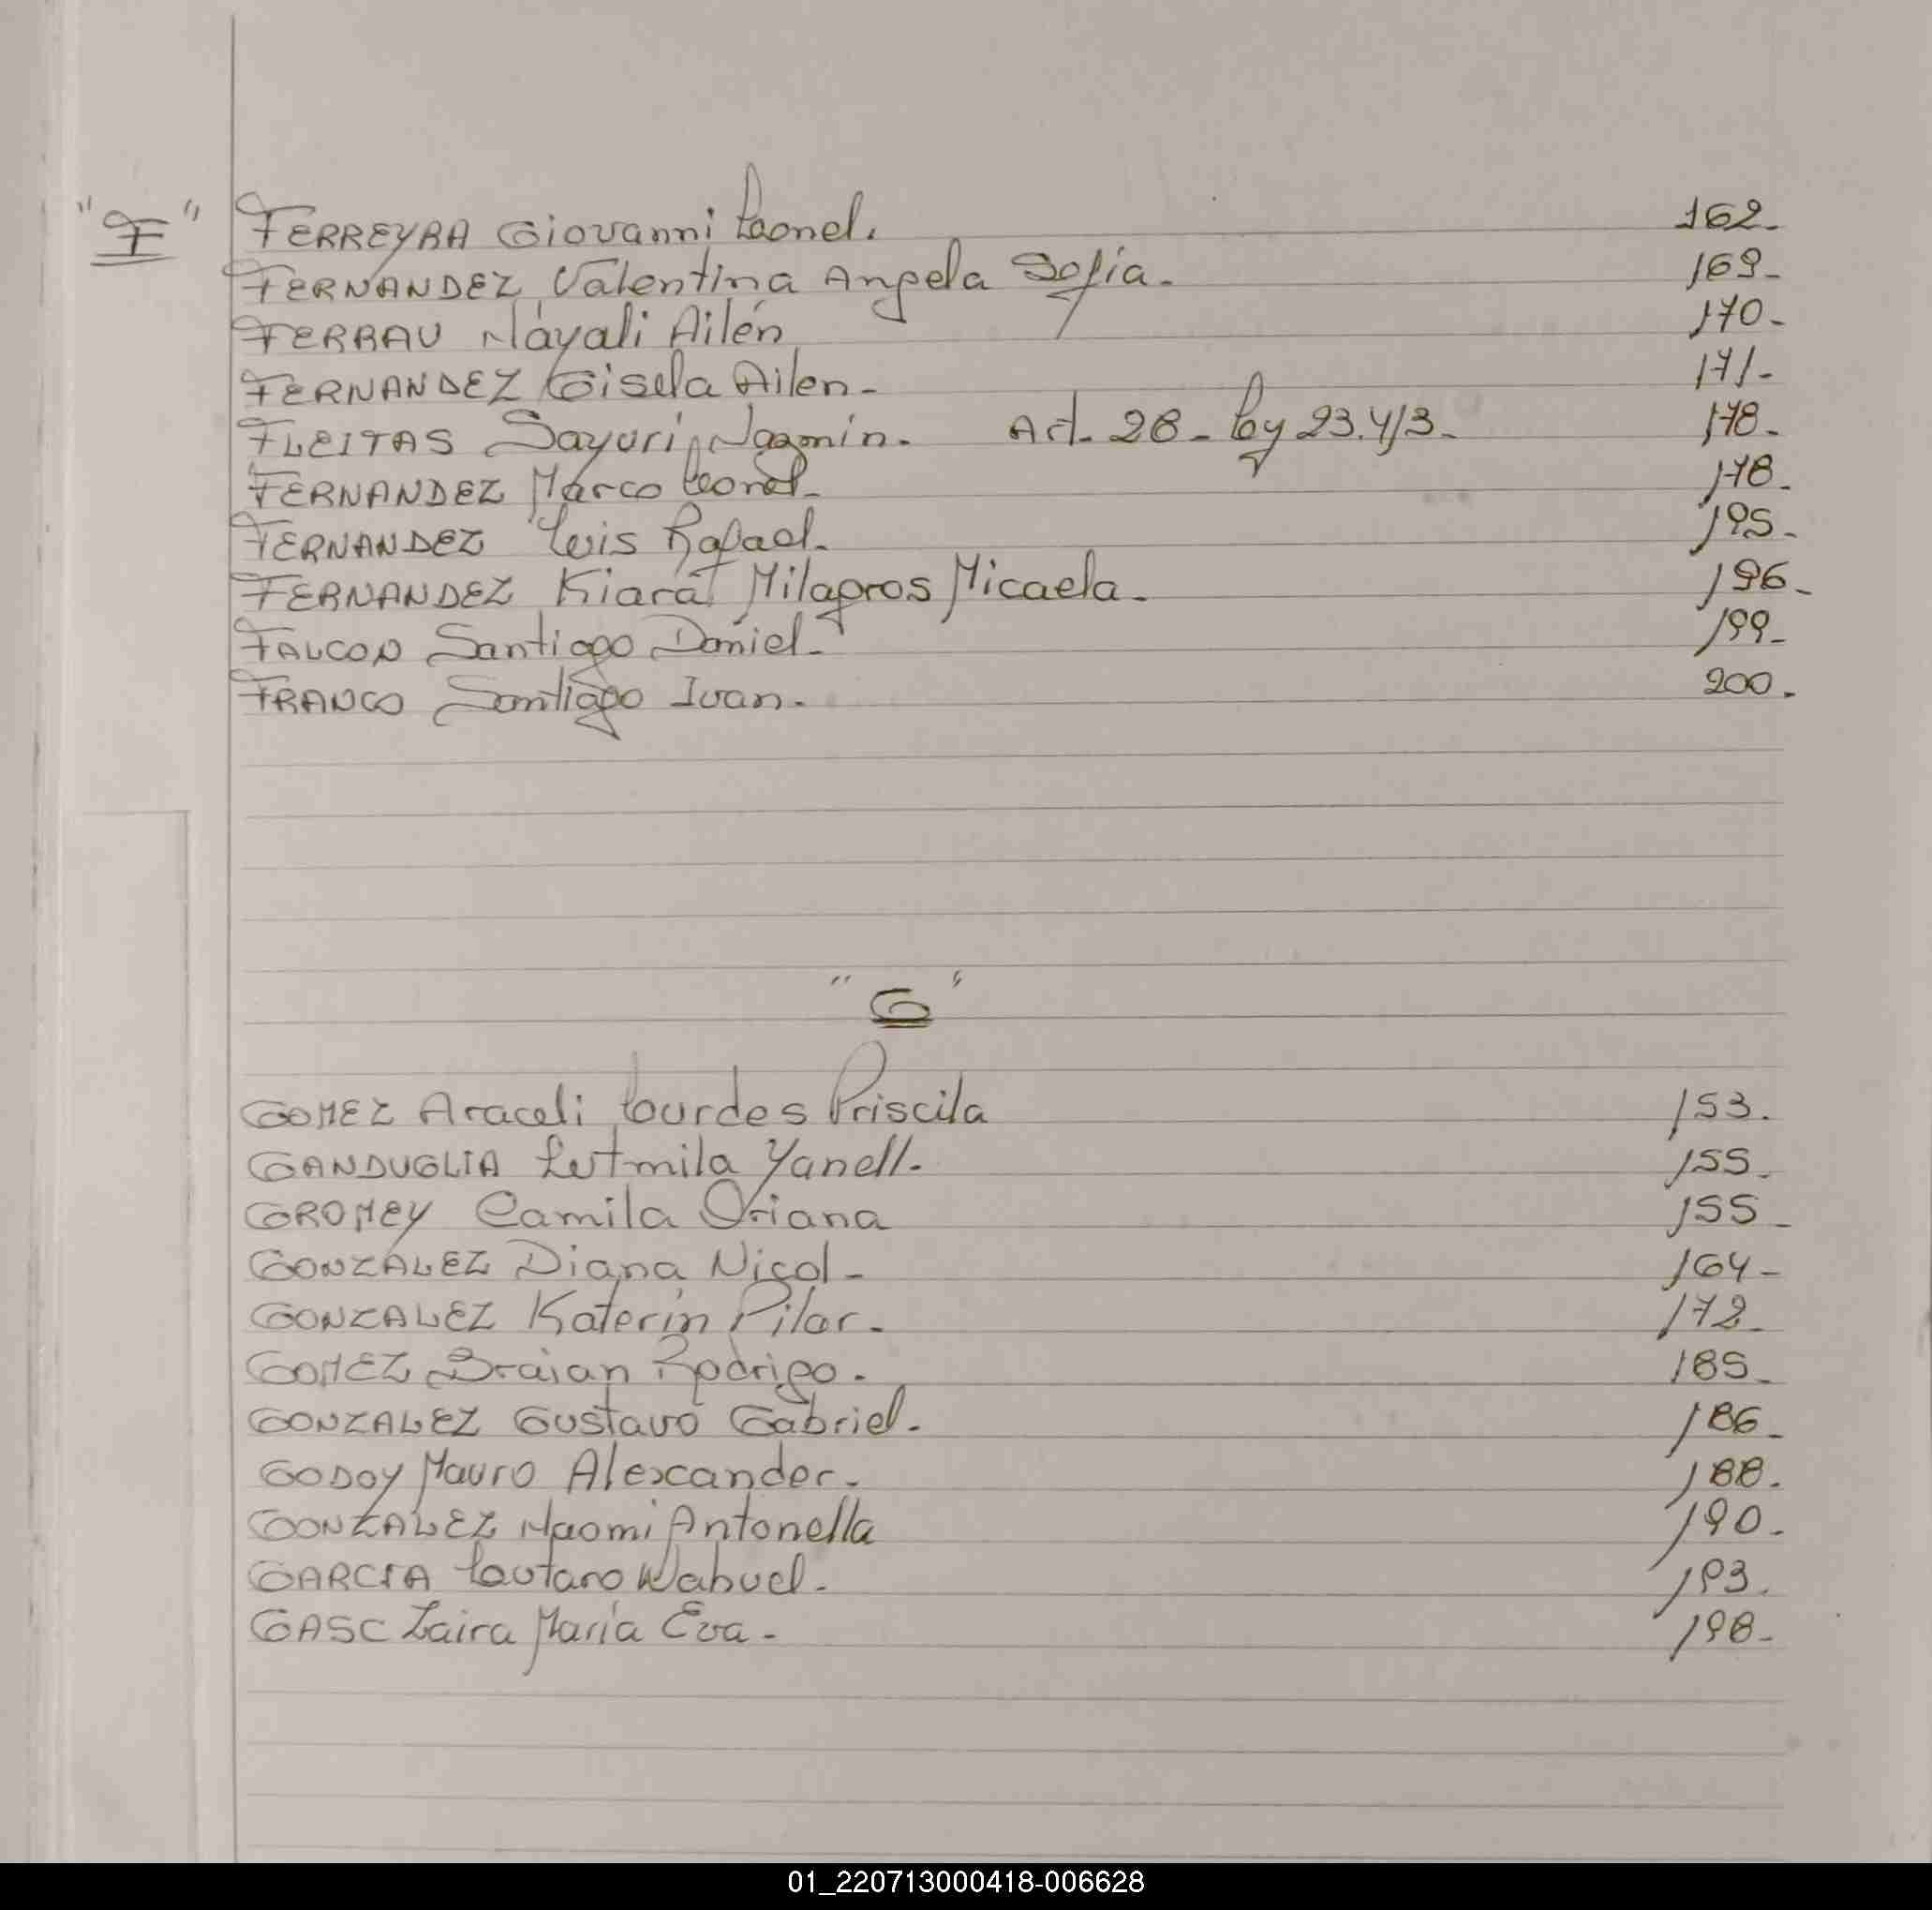 "F" FERREYRA Giovanni Leonel. 162-
FERNANDEZ Valentina Angela Sofía- 169-
FERRAU Nayali Ailén 170-
FERNANDEZ Gisela Ailen- 171-
FLEITAS Sayuri Jazmin. Art- 28- Ley 23.413- 178-
FERNANDEZ Marco Leonel- 178-
FERNANDEZ Luis Rafael- 195-
FERNANDEZ Kiara Milagros Micaela- 196-
FALCON Santiago Daniel- 199-
FRANCO Santiago Ivan- 200-
"G"
GOMEZ Araceli Lourdes Priscila 153.
GANDUGLIA Lutmila Yanell. 155-
GROMEY Camila Oriana 155-
GONZALEZ Diana Nicol- 164-
GONZALEZ Katerin Pilar- 172-
GOMEZ Braian Rodrigo. 185-
GONZALEZ Gustavo Gabriel- 186-
GODOY Mauro Alexander- 188-
GONZALEZ Naomi Antonella 190-
GARCIA Lautaro Nahuel- 193.
GASC Zaira María Eva- 198-
01_220713000418-006628